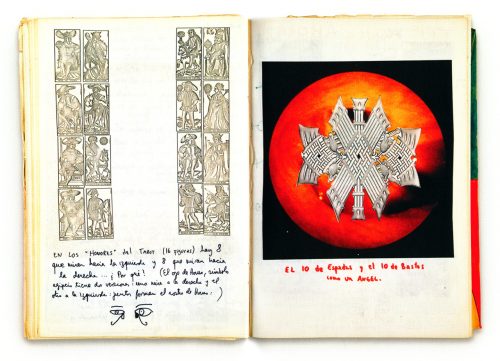 EN LOS "HONORES" del TAROT (16 figuras) hay 8
que miran hacia la izquierda y 8 que miran hacia
la derecha ... ¿Por qué? (El ojo de Horus, símbolo
egipcio tiene dos versiones: uno mira a la derecha y el
otro a la izquierda: juntos forman el rostro de Horus.)
EL 10 de Espadas y el 10 de Bastos
como un ANGEL.